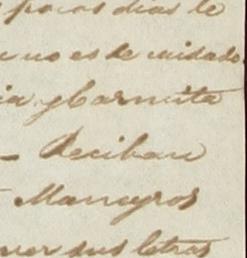 pocos dias le
no es de cuidado
y Carmita
Reciban
ver sus letras